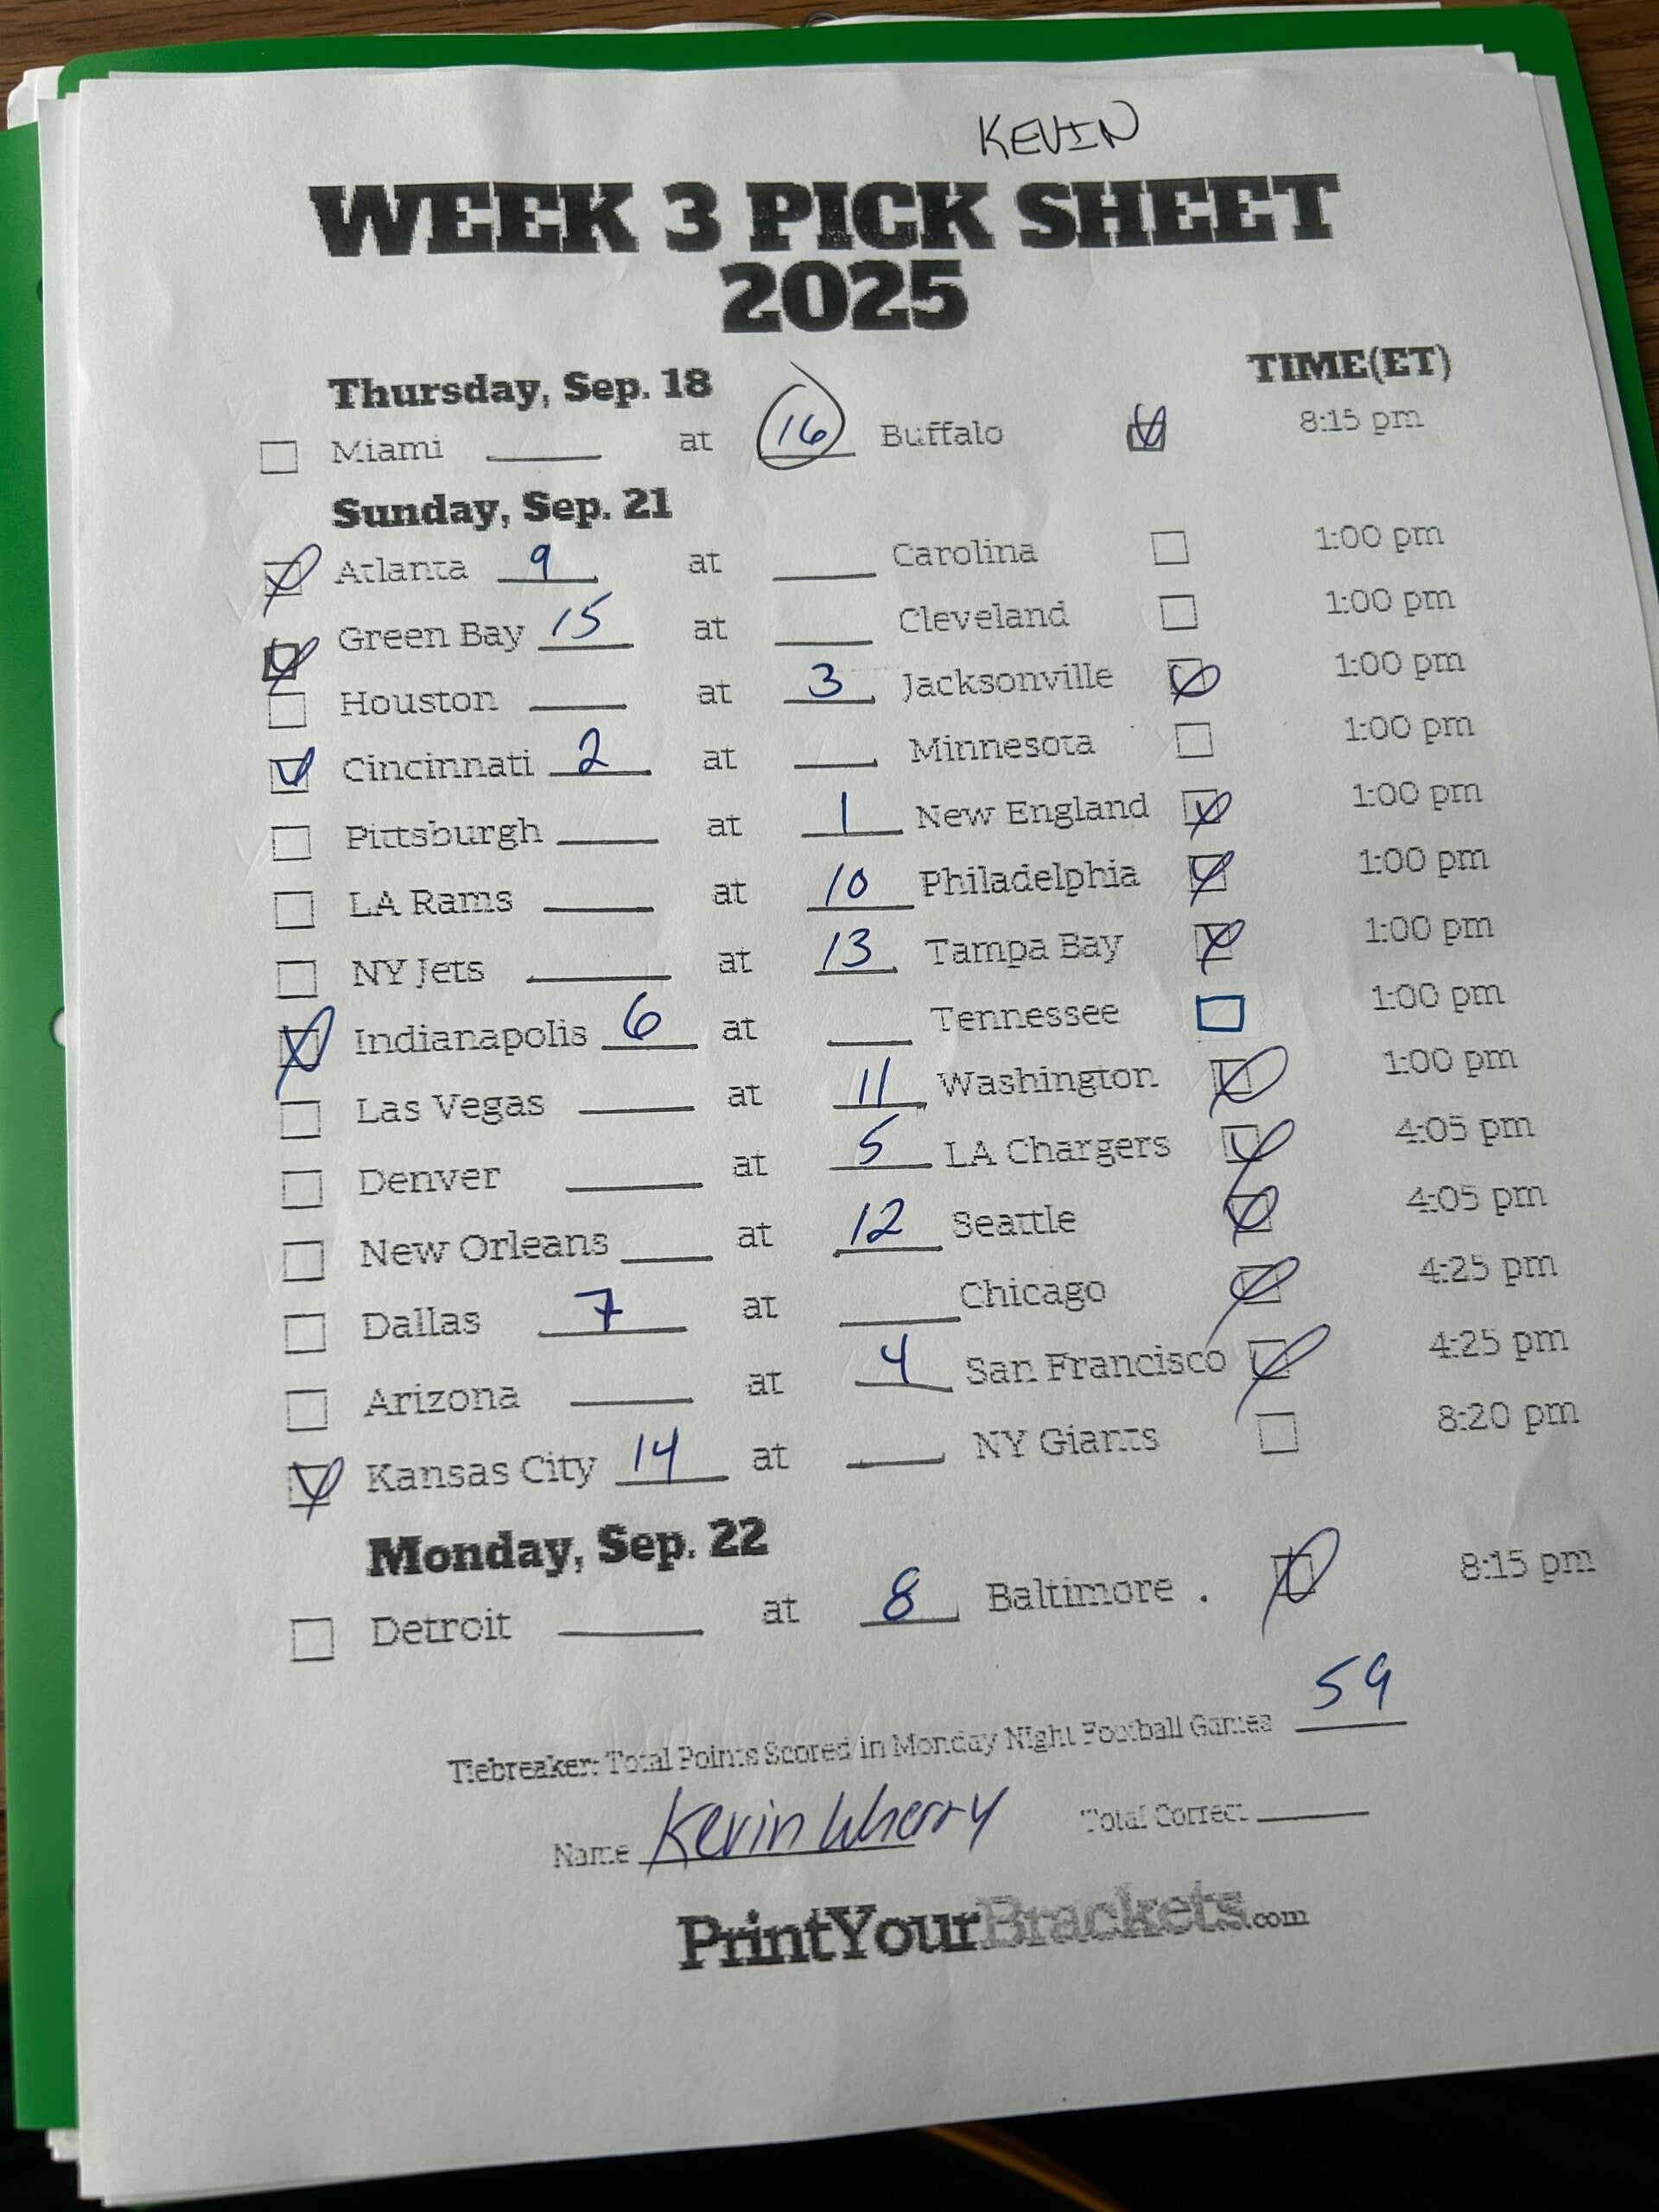 KEVIN
WEEK 3 PICK SHEET
2025
Thursday, Sep. 18 TIME(ET)
Miami at 16 Buffalo 8:15 pm
Sunday, Sep. 21
Atlanta 9 at Carolina 1:00 pm
Green Bay 15 at Cleveland 1:00 pm
Houston at 3 Jacksonville 1:00 pm
Cincinnati 2 at Minnesota 1:00 pm
Pittsburgh at 1 New England 1:00 pm
LA Rams at 10 Philadelphia 1:00 pm
NY Jets at 13 Tampa Bay 1:00 pm
Indianapolis 6 at Tennessee 1:00 pm
Las Vegas at 11 Washington 1:00 pm
Denver at 5 LA Chargers 4:05 pm
New Orleans at 12 Seattle 4:05 pm
Dallas 7 at Chicago 4:25 pm
Arizona at 4 San Francisco 4:25 pm
Kansas City 14 at NY Giants 8:20 pm
Monday, Sep. 22
Detroit at 8 Baltimore . 8:15 pm
Tiebreaker: Total Points Scored in Monday Night Football Games 59
Name Kevin Wherry Total Correct
PrintYourBrackets.com